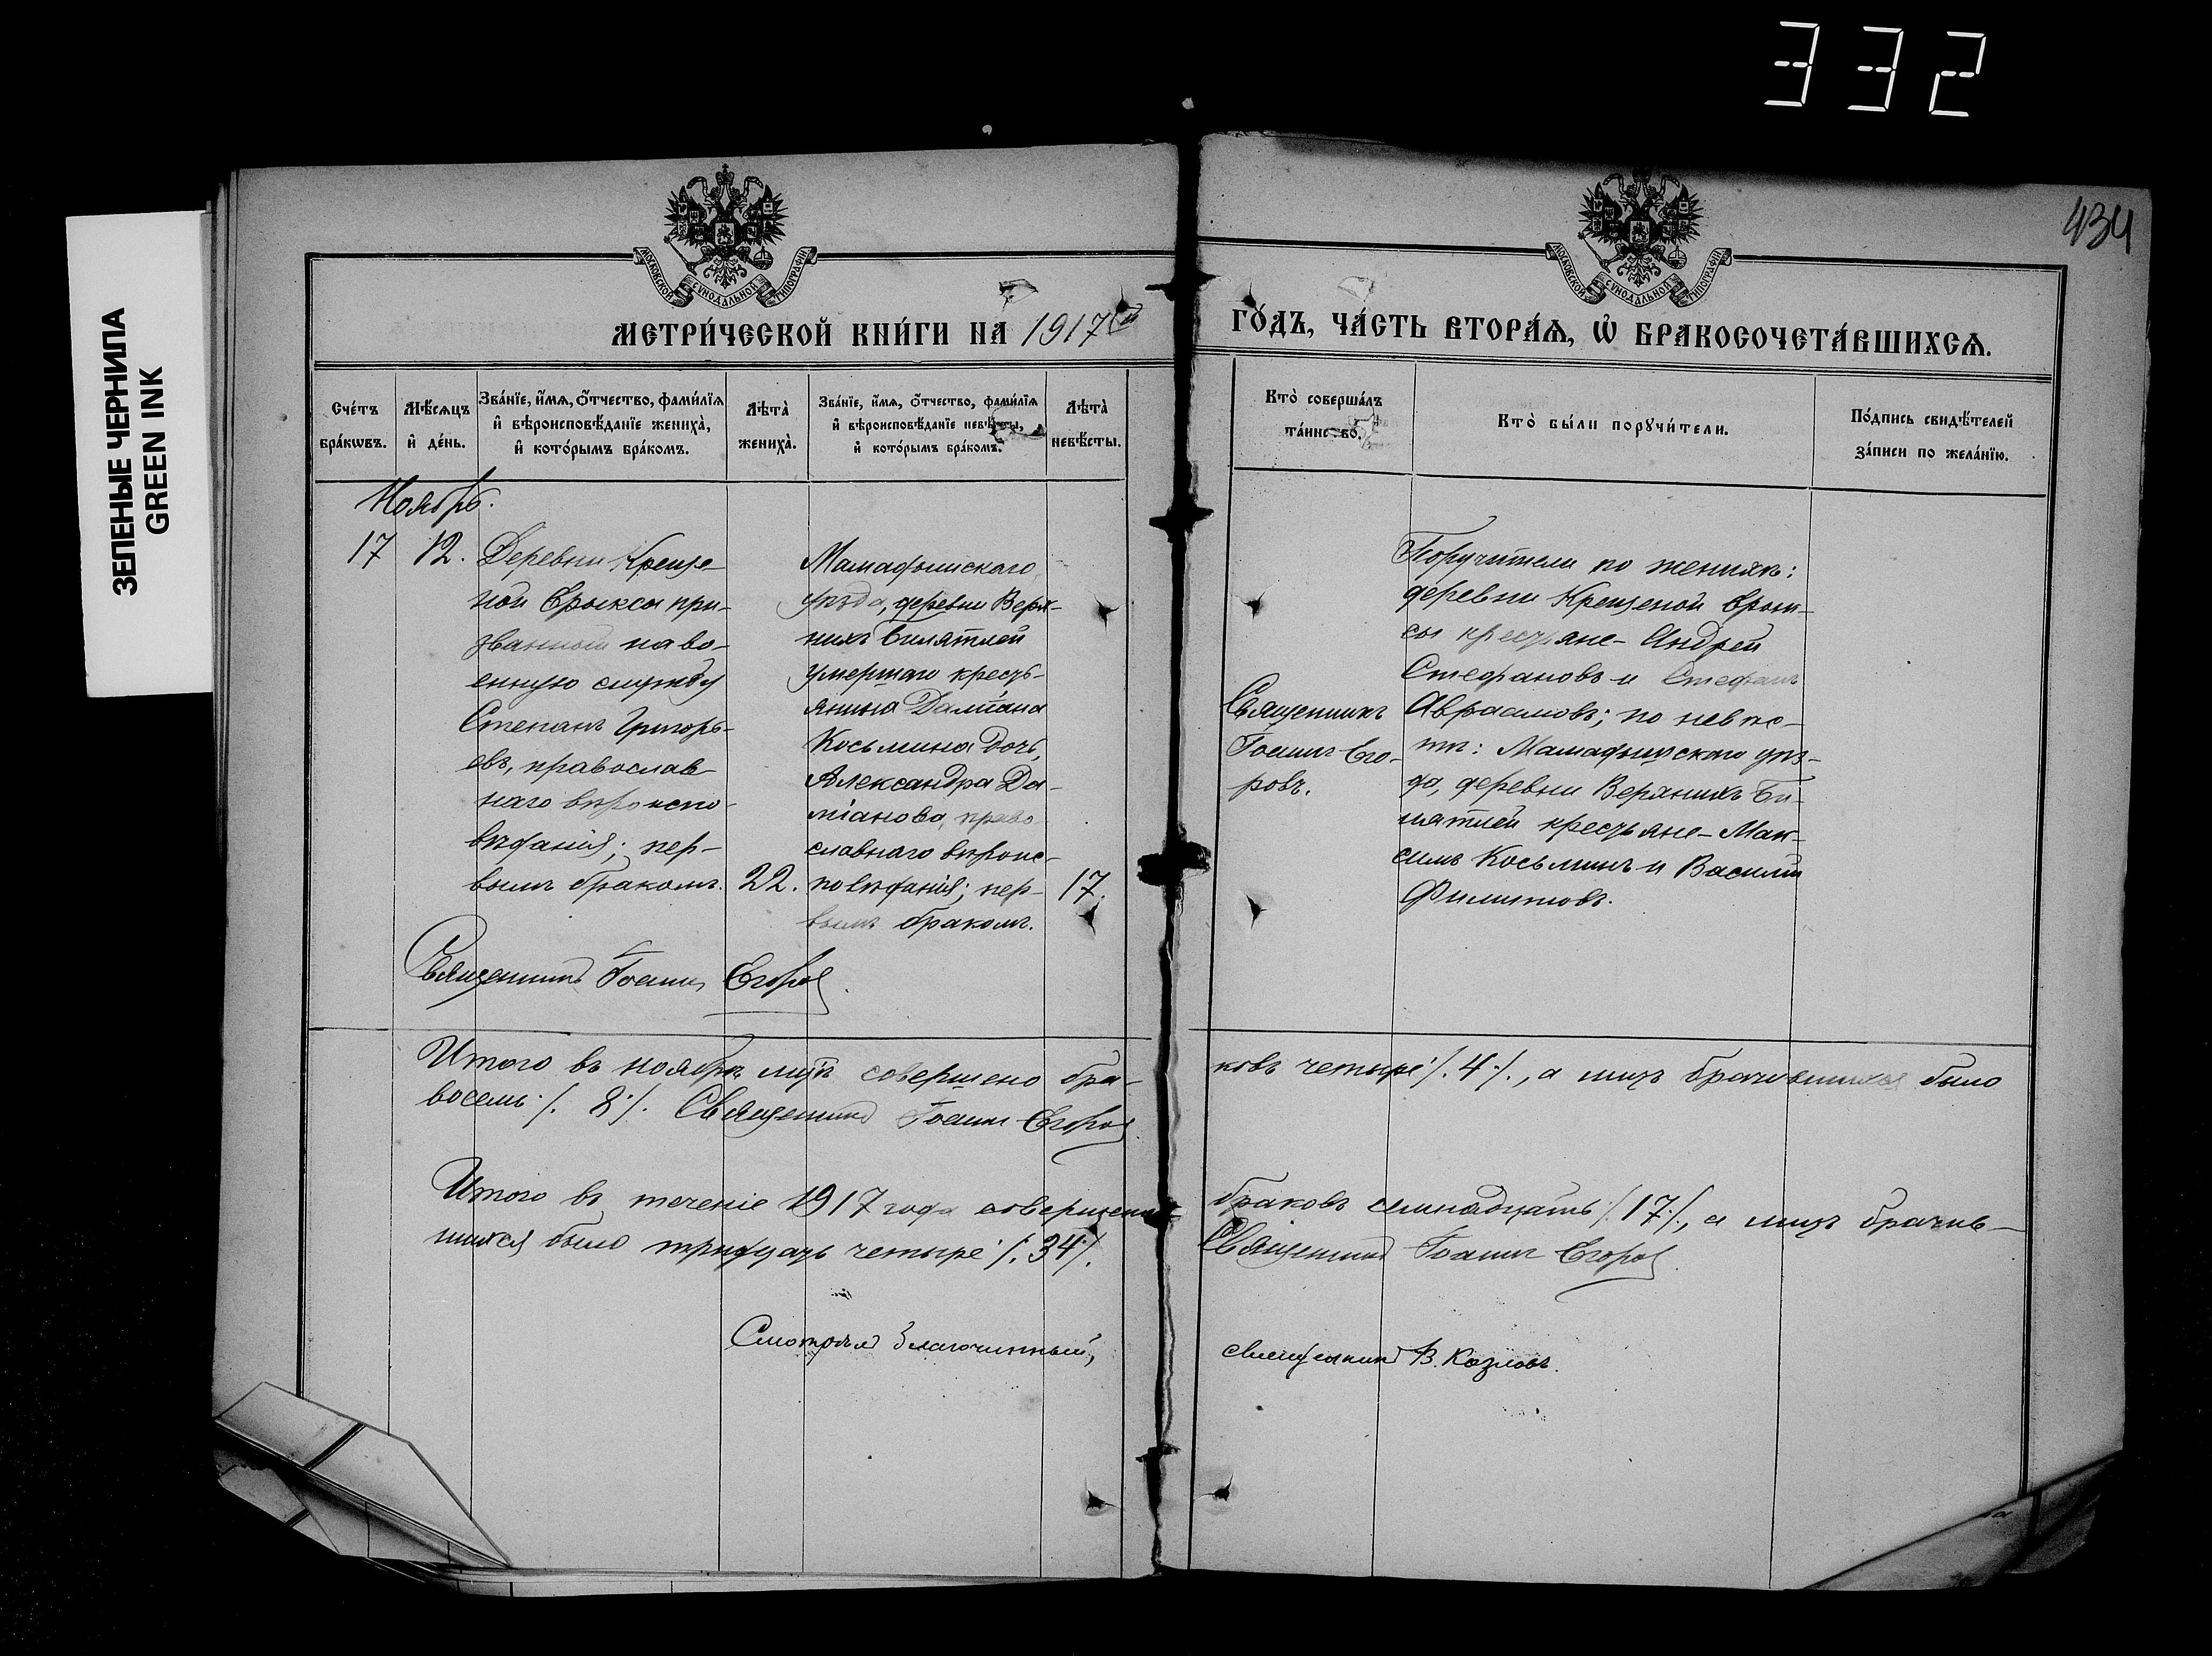 332
434
ЗЕЛЕНЫЕ ЧЕРНИЛА
GREEN INK
МОСКОВСКОЙ СѴНОДАЛЬНОЙ ТИПОГРАФІИ
МОСКОВСКОЙ СѴНОДАЛЬНОЙ ТИПОГРАФІИ
МЕТРИ́ЧЕСКОЙ КНИ́ГИ НА 1917й
ГО́ДЪ, ЧА́СТЬ ВТОРА́Ѧ, Ѡ҆ БРАКОСОЧЕТА́ВШИХСѦ.
Сче́тъ
бра́кѡвъ.
Мѣ́сѧцъ
и҆ де́нь.
Зва́нїе, и҆́мѧ, о҆́тчество, фами́лїѧ
и҆ вѣроисповѣ́данїе жениха̀,
и҆ кото́рымъ бра́комъ.
Лѣта̀
жениха̀.
Зва́нїе, и҆́мѧ, о҆́тчество, фами́лїѧ
и҆ вѣроисповѣ́данїе невѣ́сты,
и҆ кото́рымъ бра́комъ.
Лѣта̀
невѣ́сты.
Кто̀ соверша́лъ
та́инство.
Кто̀ бы́ли порꙋчи́тели.
По́дпись свидѣ́телей
за́писи по жела́нїю.
Ноябрь.
17
12.
Деревни Креще-
ной Ерыксы при-
званный на во-
енную службу
Степанъ Григорь-
евъ, православ-
наго вѣроиспо-
вѣданія; пер-
вымъ бракомъ.
22.
Мамадышскаго
уѣзда, деревни Верх-
нихъ Билятлей
умершаго кресть-
янина Даміана
Косьмина дочь,
Александра Да-
міанова, право-
славнаго вѣроис-
повѣданія; пер-
вымъ бракомъ.
17.
Священникъ
Іоаннъ Его-
ровъ.
Поручители по женихѣ:
деревни Крещеной Ерык-
сы крестьяне - Андрей
Стефановъ и Стефанъ
Авраамовъ; по невѣс-
тѣ: Мамадышскаго уѣз-
да, деревни Верхнихъ Би-
лятлей крестьяне - Мак-
симъ Косьминъ и Василій
Филипповъ.
Священникъ Іоаннъ Егоровъ.
Итого въ ноябрѣ м-цѣ совершено бра-
ковъ четыре /.4./, а лицъ брачившихся было
восемь /.8./. Священникъ Іоаннъ Егоровъ
Итого въ теченіе 1917 года совершено
браковъ семнадцать /.17./, а лицъ брачив-
шихся было тридцать четыре /.34./.
Священникъ Іоаннъ Егоровъ.
Смотрѣлъ Благочинный,
священникъ В. Козловъ.